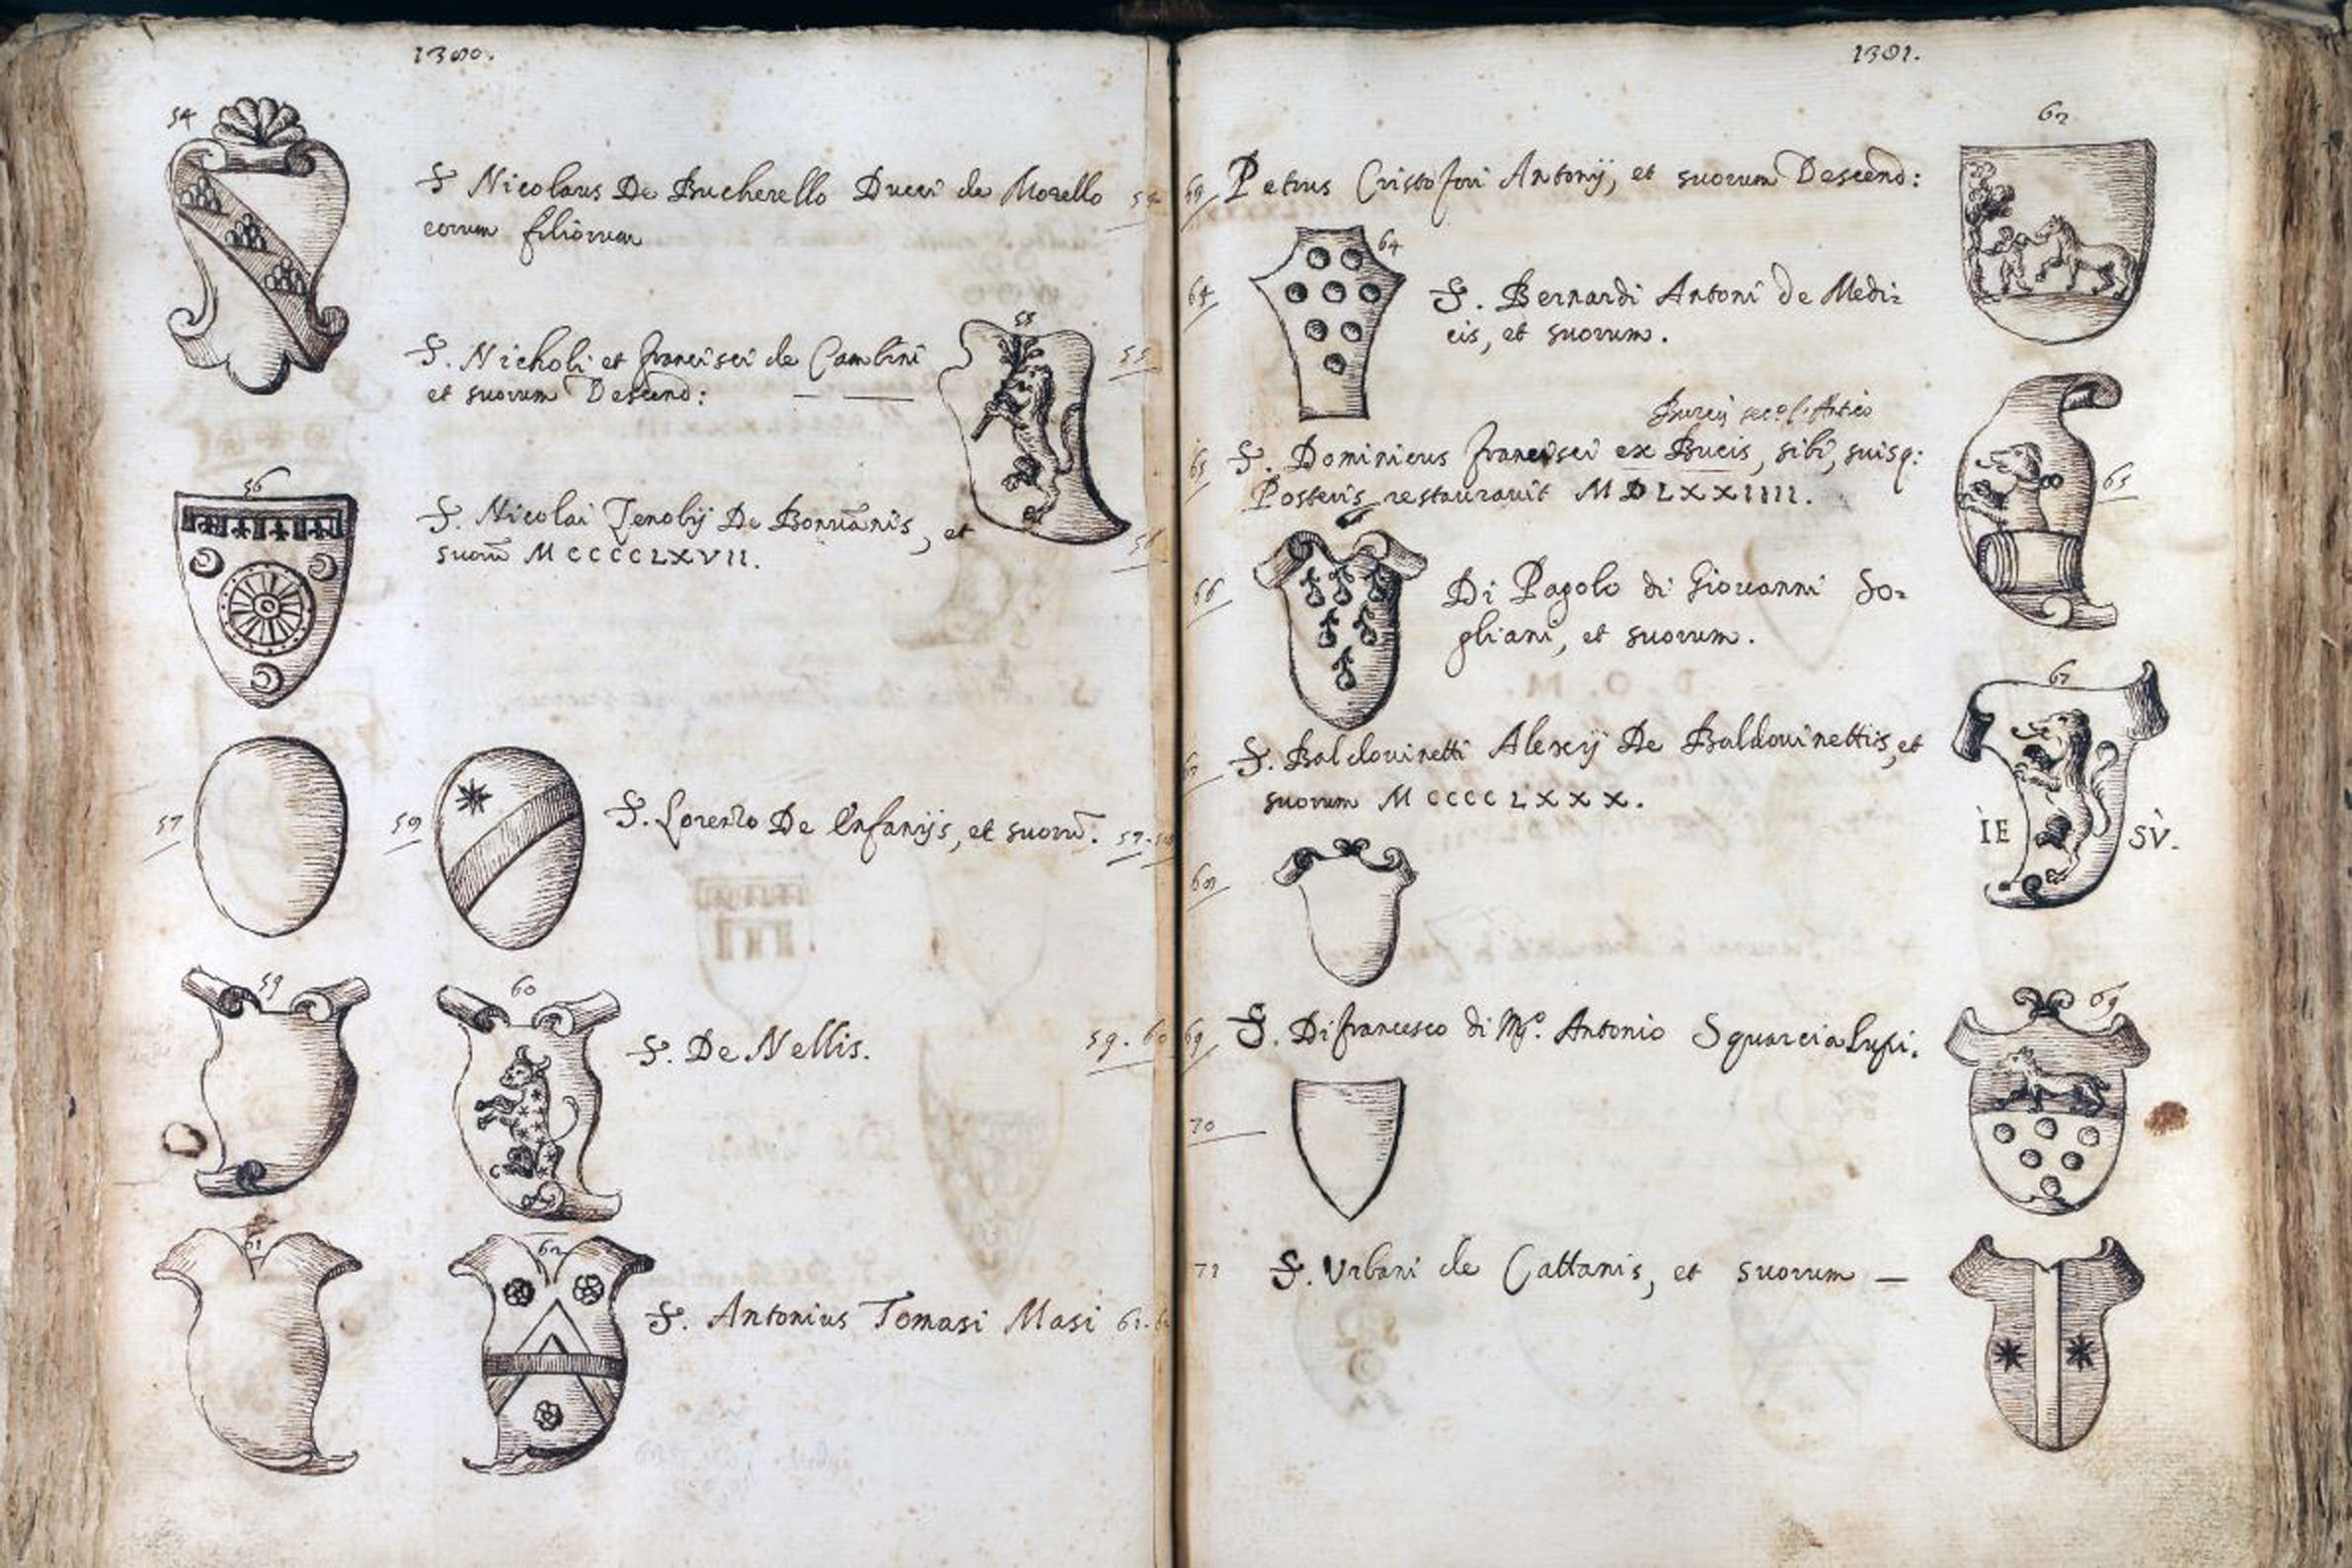 1380.
54
S Nicolaus De Bucherello Ducci de Morello 54
eorum filiorum
55
S. Nicholi et francisci de Cambini 55
et suorum Descend:
56
S. Nicolai Zenobij De Bonuanis, et
suorũ MCCCCLXVII.
57 58
S. Lorenzo De Enfanijs, et suorũ. 57.
59 60
S. De Nellis. 59. 60
61 62
S. Antonius Tomasi Masi 61.
1381.
63
Petrus Cristofori Antonij, et suorum Descend:
64 64
S. Bernardi Antoni de Medi:
cis, et suorum.
65 S. Dominicus francisci ex Bucis, sibi, suisq:
Posteris restaurauit MDLXXIIII.
65
66 Di Pagolo di Giovanni So:
gliani, et suorum.
67
S. Baldovinetti Alexij De Baldouinettis, et
suorum MCCCCLXXX.
IE SV.
68
69 S. Di francesco di Mº. Antonio Squarcialupi. 69
70
71 S. Vrbani de Cattanis, et suorum